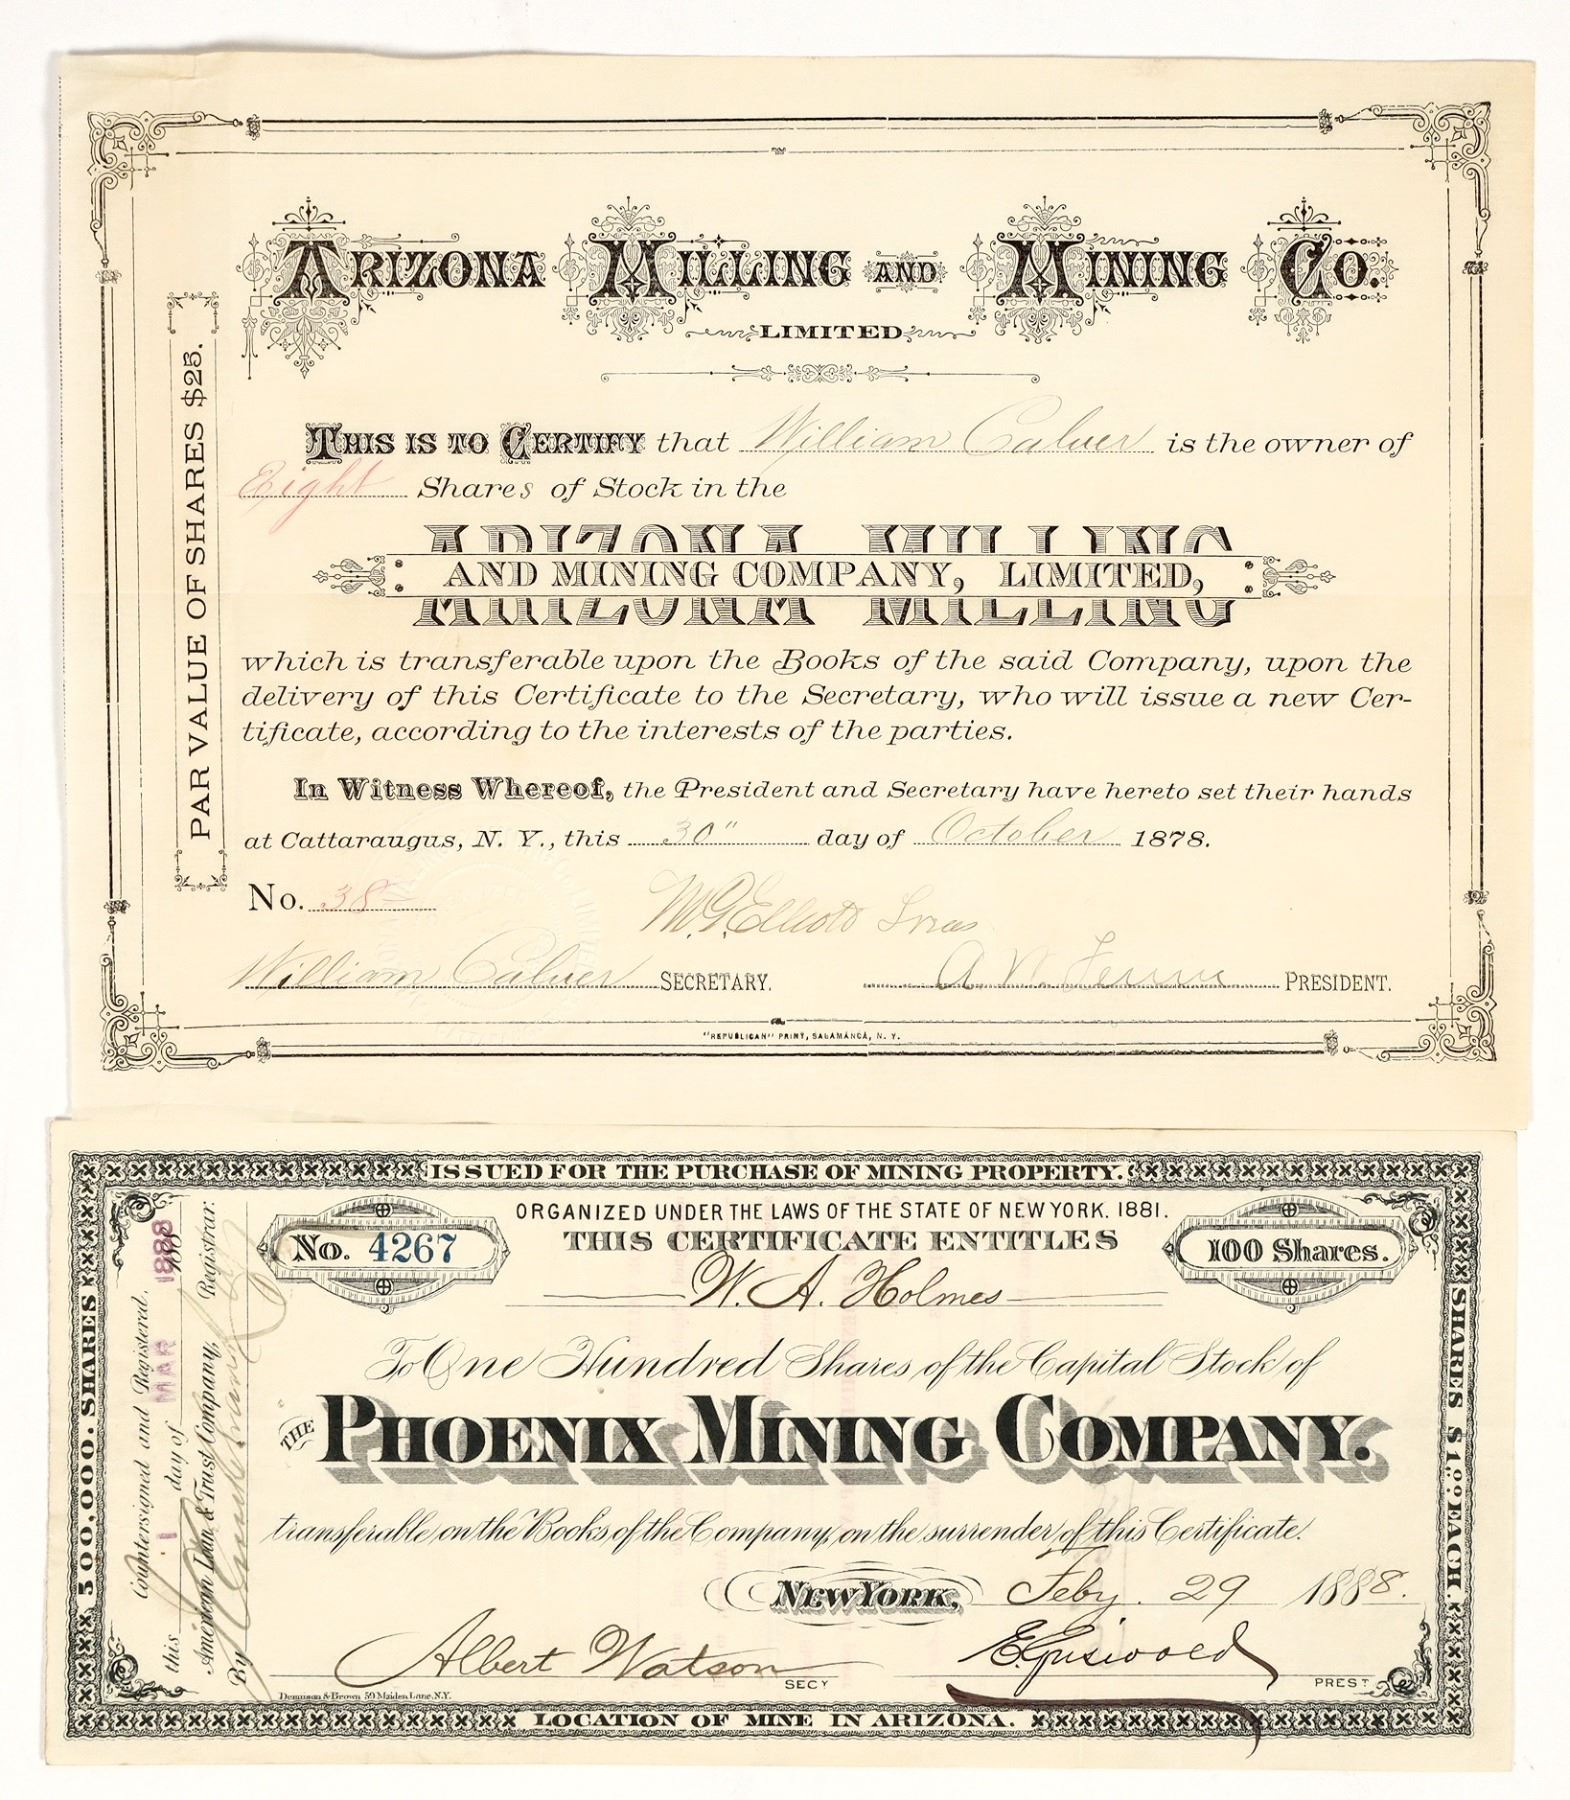 ARIZONA MILLING AND MINING CO.
LIMITED
PAR VALUE OF SHARES $25.
THIS IS TO CERTIFY that William Calver is the owner of
Eight Shares of Stock in the
ARIZONA MILLING
AND MINING COMPANY, LIMITED,
which is transferable upon the Books of the said Company, upon the
delivery of this Certificate to the Secretary, who will issue a new Cer-
tificate, according to the interests of the parties.
In Witness Whereof, the President and Secretary have hereto set their hands
at Cattaraugus, N. Y., this 30" day of October 1878.
No. 38
Elliott Treas
William Calver SECRETARY. PRESIDENT.
"REPUBLICAN" PRINT, SALAMANCA, N. Y.
ISSUED FOR THE PURCHASE OF MINING PROPERTY.
ORGANIZED UNDER THE LAWS OF THE STATE OF NEW YORK. 1881.
No. 4267
THIS CERTIFICATE ENTITLES
100 Shares.
W. A. Holmes
To One Hundred Shares of the Capital Stock of
THE PHOENIX MINING COMPANY.
transferable on the Books of the Company, on the surrender of this Certificate.
NEW YORK, Feby. 29 1888.
Albert Watson SECY
E. Griswold PREST
Dennison & Brown 59 Maiden Lane, N.Y.
LOCATION OF MINE IN ARIZONA.
500,000. SHARES
SHARES $1.00 EACH.
Countersigned and Registered.
this 1 day of MAR 1888
American Loan & Trust Company, Registrar.
By